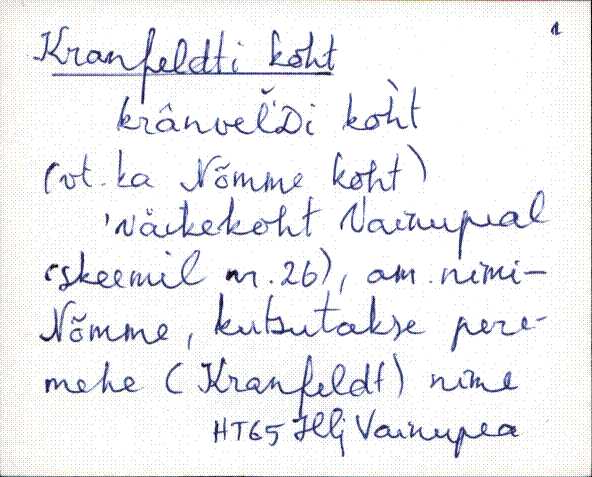 1
Kranfeldti koht
krânvel̆Di kòht
(vt. ka Nõmme koht)
'väikekoht Vainupeal
(skeemil nr. 26), am. nimi-
Nõmme, kutsutakse pere-
mehe (Kranfeldt) nime
HT65 Hlj Vainupea